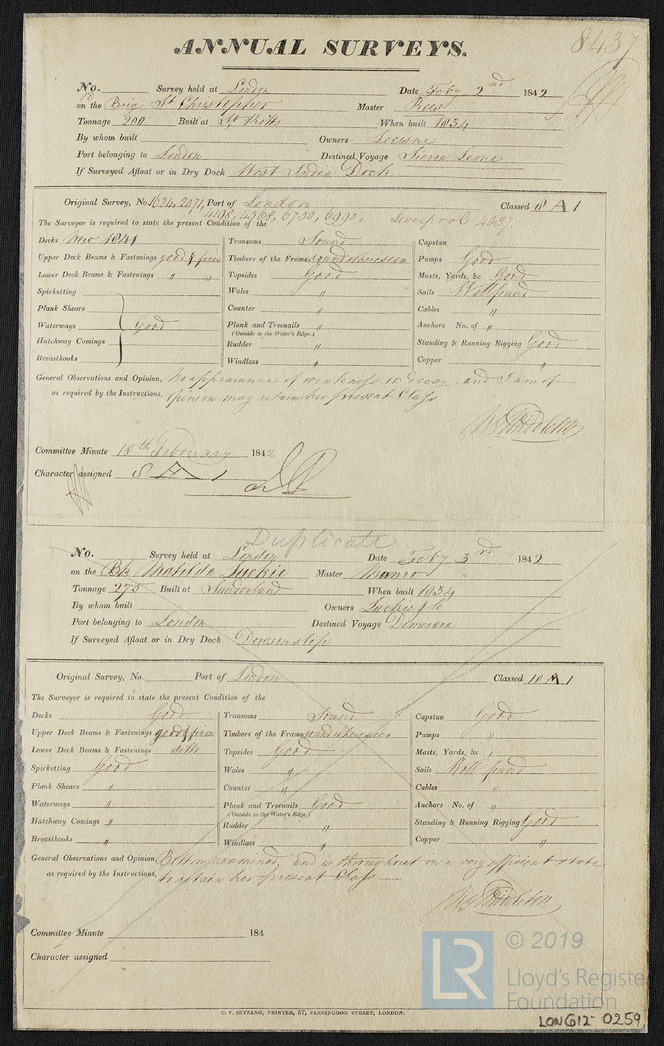 8437
ANNUAL SURVEYS.
No. Survey held at London Date Feby 2nd 1842
on the Brig St Christopher Master Rees
Tonnage 200 Built at St Kitts When built 1834
By whom built Owners
Port belonging to London Destined Voyage Sierra Leone
If Surveyed Afloat or in Dry Dock West India Dock
Original Survey, No. 1624, 2071, Port of London Classed 8 A 1
4198, 4568, 6750, 6990, Liverpool
The Surveyor is required to state the present Condition of the
Decks New 1841 Transoms Sound Capstan
Upper Deck Beams & Fastenings good & firm Timbers of the Frame sound where seen Pumps Good
Lower Deck Beams & Fastenings " " Topsides Good Masts, Yards, &c. Good
Spirketting Wales " Sails Well found
Plank Shears Counter " Cables "
Waterways Good Plank and Treenails " Anchors No. of "
(Outside to the Water's Edge.)
Hatchway Comings Rudder " Standing & Running Rigging Good
Breasthooks Windlass " Copper "
General Observations and Opinion, No appearance of weakness or decay, and I am of
as required by the Instructions, Opinion may retain her present Class
Middleton
Committee Minute 18th February 1842
Character assigned 8 A 1
Duplicate
No. Survey held at London Date Feby 3rd 1842
on the Bk Matilda Luckie Master Munro
Tonnage 275 Built at Sunderland When built 1834
By whom built Owners Luckie & Co
Port belonging to London Destined Voyage Demerara
If Surveyed Afloat or in Dry Dock
Original Survey, No. Port of London Classed 10 A 1
The Surveyor is required to state the present Condition of the
Decks Good Transoms Sound Capstan Good
Upper Deck Beams & Fastenings good & firm Timbers of the Frame sound where seen Pumps "
Lower Deck Beams & Fastenings ditto Topsides Good Masts, Yards, &c. "
Spirketting Good Wales " Sails Well found
Plank Shears " Counter " Cables "
Waterways " Plank and Treenails Good Anchors No. of "
(Outside to the Water's Edge.)
Hatchway Comings " Rudder " Standing & Running Rigging Good
Breasthooks " Windlass " Copper "
General Observations and Opinion, Bottom examined, and is throughout in a very efficient state
as required by the Instructions, to retain her present Class
Middleton
Committee Minute 184
Character assigned
LR © 2019
Lloyd's Register
Foundation
C. F. SEYFANG, PRINTER, 57, FARRINGDON STREET, LONDON.
LON612-0259